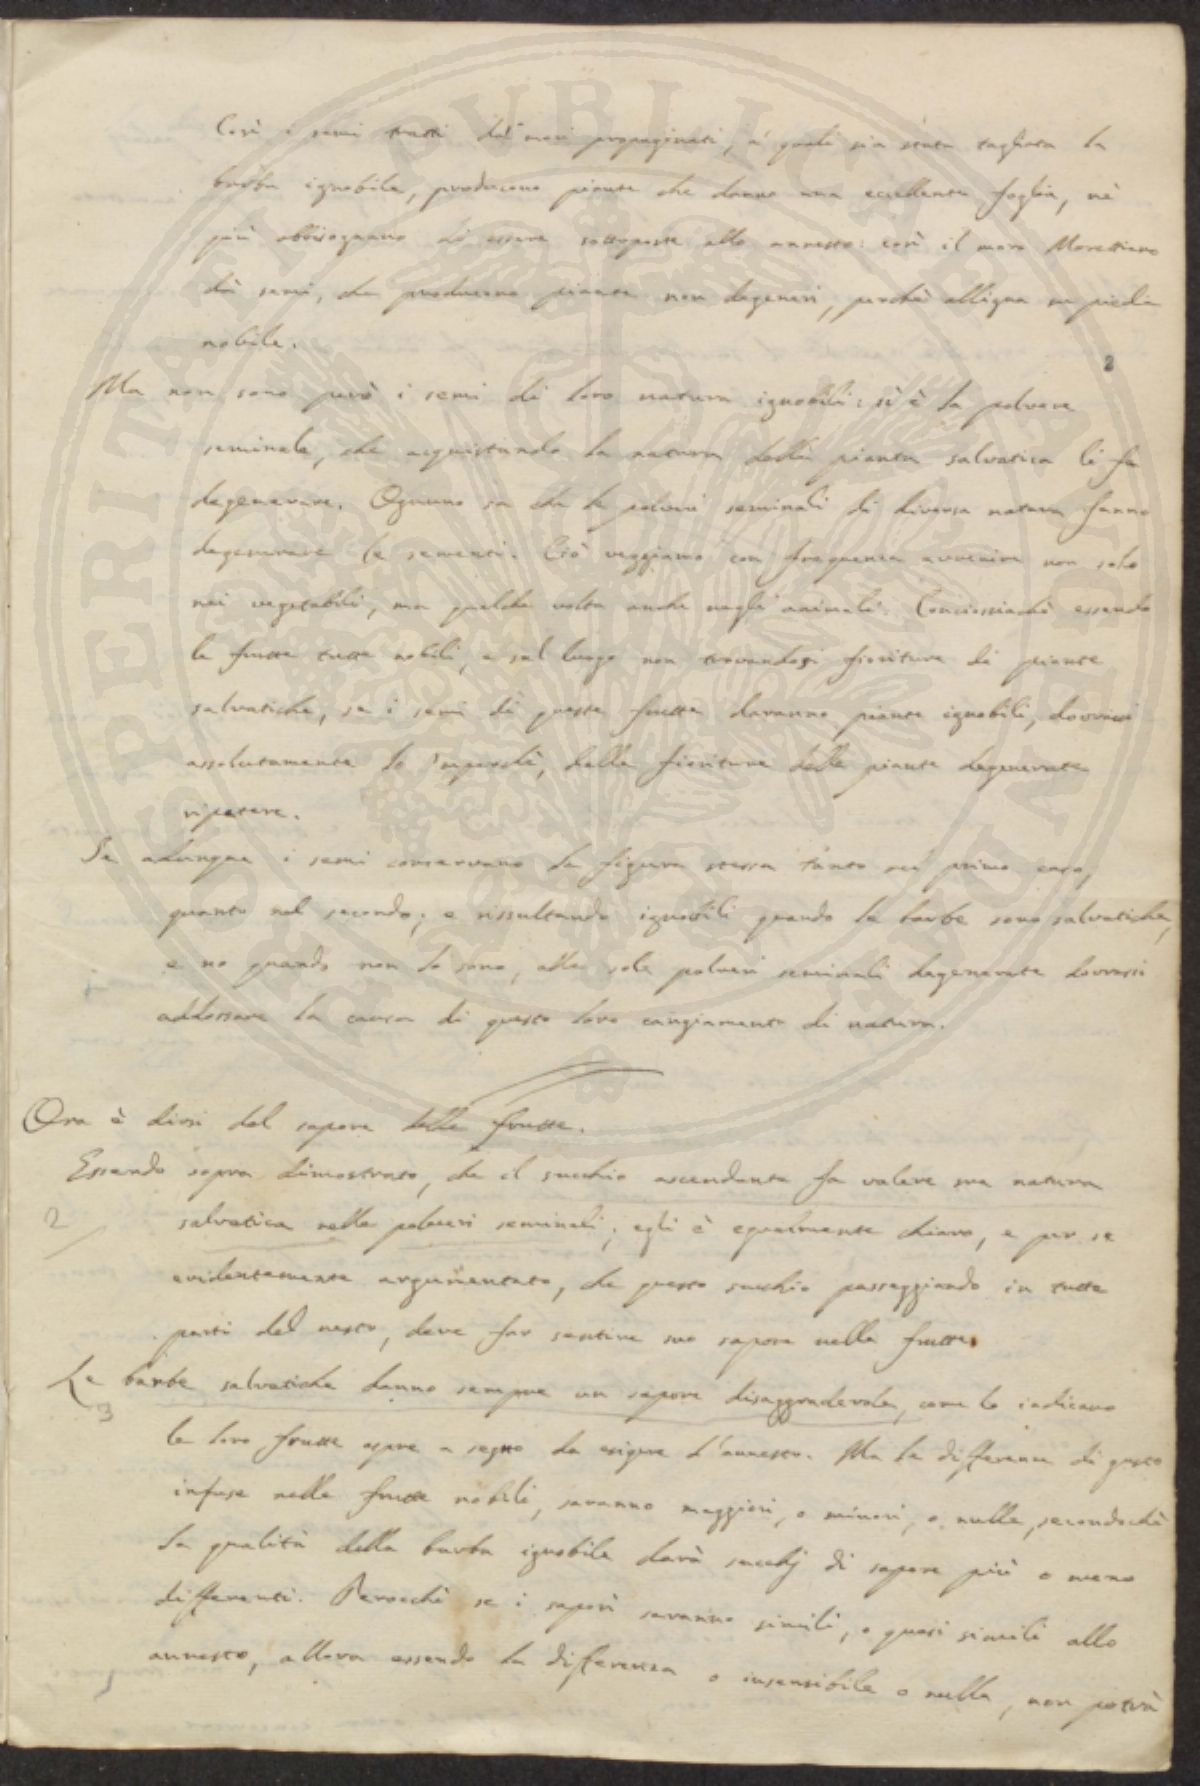 Così i semi tratti dai mori propaginati, a' quali sia stata tagliata la
barba ignobile, producono piante che danno una eccellente foglia, nè
più abbisognano di essere sottoposte allo annesto: così il moro Morettiano
dà semi, che producono piante non degeneri, perchè alligna su piede
nobile.
2
Ma non sono però i semi di loro natura ignobili: sì è la polvere
seminale, che acquistando la natura della pianta salvatica li fa
degenerare. Ognuno sa che le polveri seminali di diversa natura fanno
degenerare le sementi. Ciò veggiamo con frequenza avvenire non solo
nei vegetabili, ma qualche volta anche negli animali. Conciossiachè essendo
le frutte tutte nobili, e sul luogo non trovandosi fioriture di piante
salvatiche, se i semi di queste frutta daranno piante ignobili, dovrassi
assolutamente lo imperchè, dalle fioriture delle piante degenerate
ripetere.
Se adunque i semi conservano la figura stessa tanto nel primo caso,
quanto nel secondo; e rissultando ignobili quando le barbe sono salvatiche,
e no quando non lo sono, alle sole polveri seminali degenerate dovrassi
addossare la causa di questo loro cangiamento di natura.
Ora è dirsi del sapore delle frutte.
Essendo sopra dimostrato, che il succhio ascendente fa valere sua natura
2
salvatica nelle polveri seminali; egli è egualmente chiaro, e per se
evidentemente argumentato, che questo succhio passeggiando in tutte
parti del nesto, deve far sentire suo sapore nelle frutte.
Le barbe salvatiche danno sempre un sapore disaggradevole, come lo indicano
3
le loro frutte aspre a segno da esigere l'annesto. Ma le differenze di gusto
infuse nelle frutte nobili, saranno maggiori, o minori, o nulle, secondochè
la qualità della barba ignobile darà succhj di sapore più o meno
differenti. Perocchè se i sapori saranno simili, o quasi simili allo
annesto, allora essendo la differenza o insensibile o nulla, non potrà